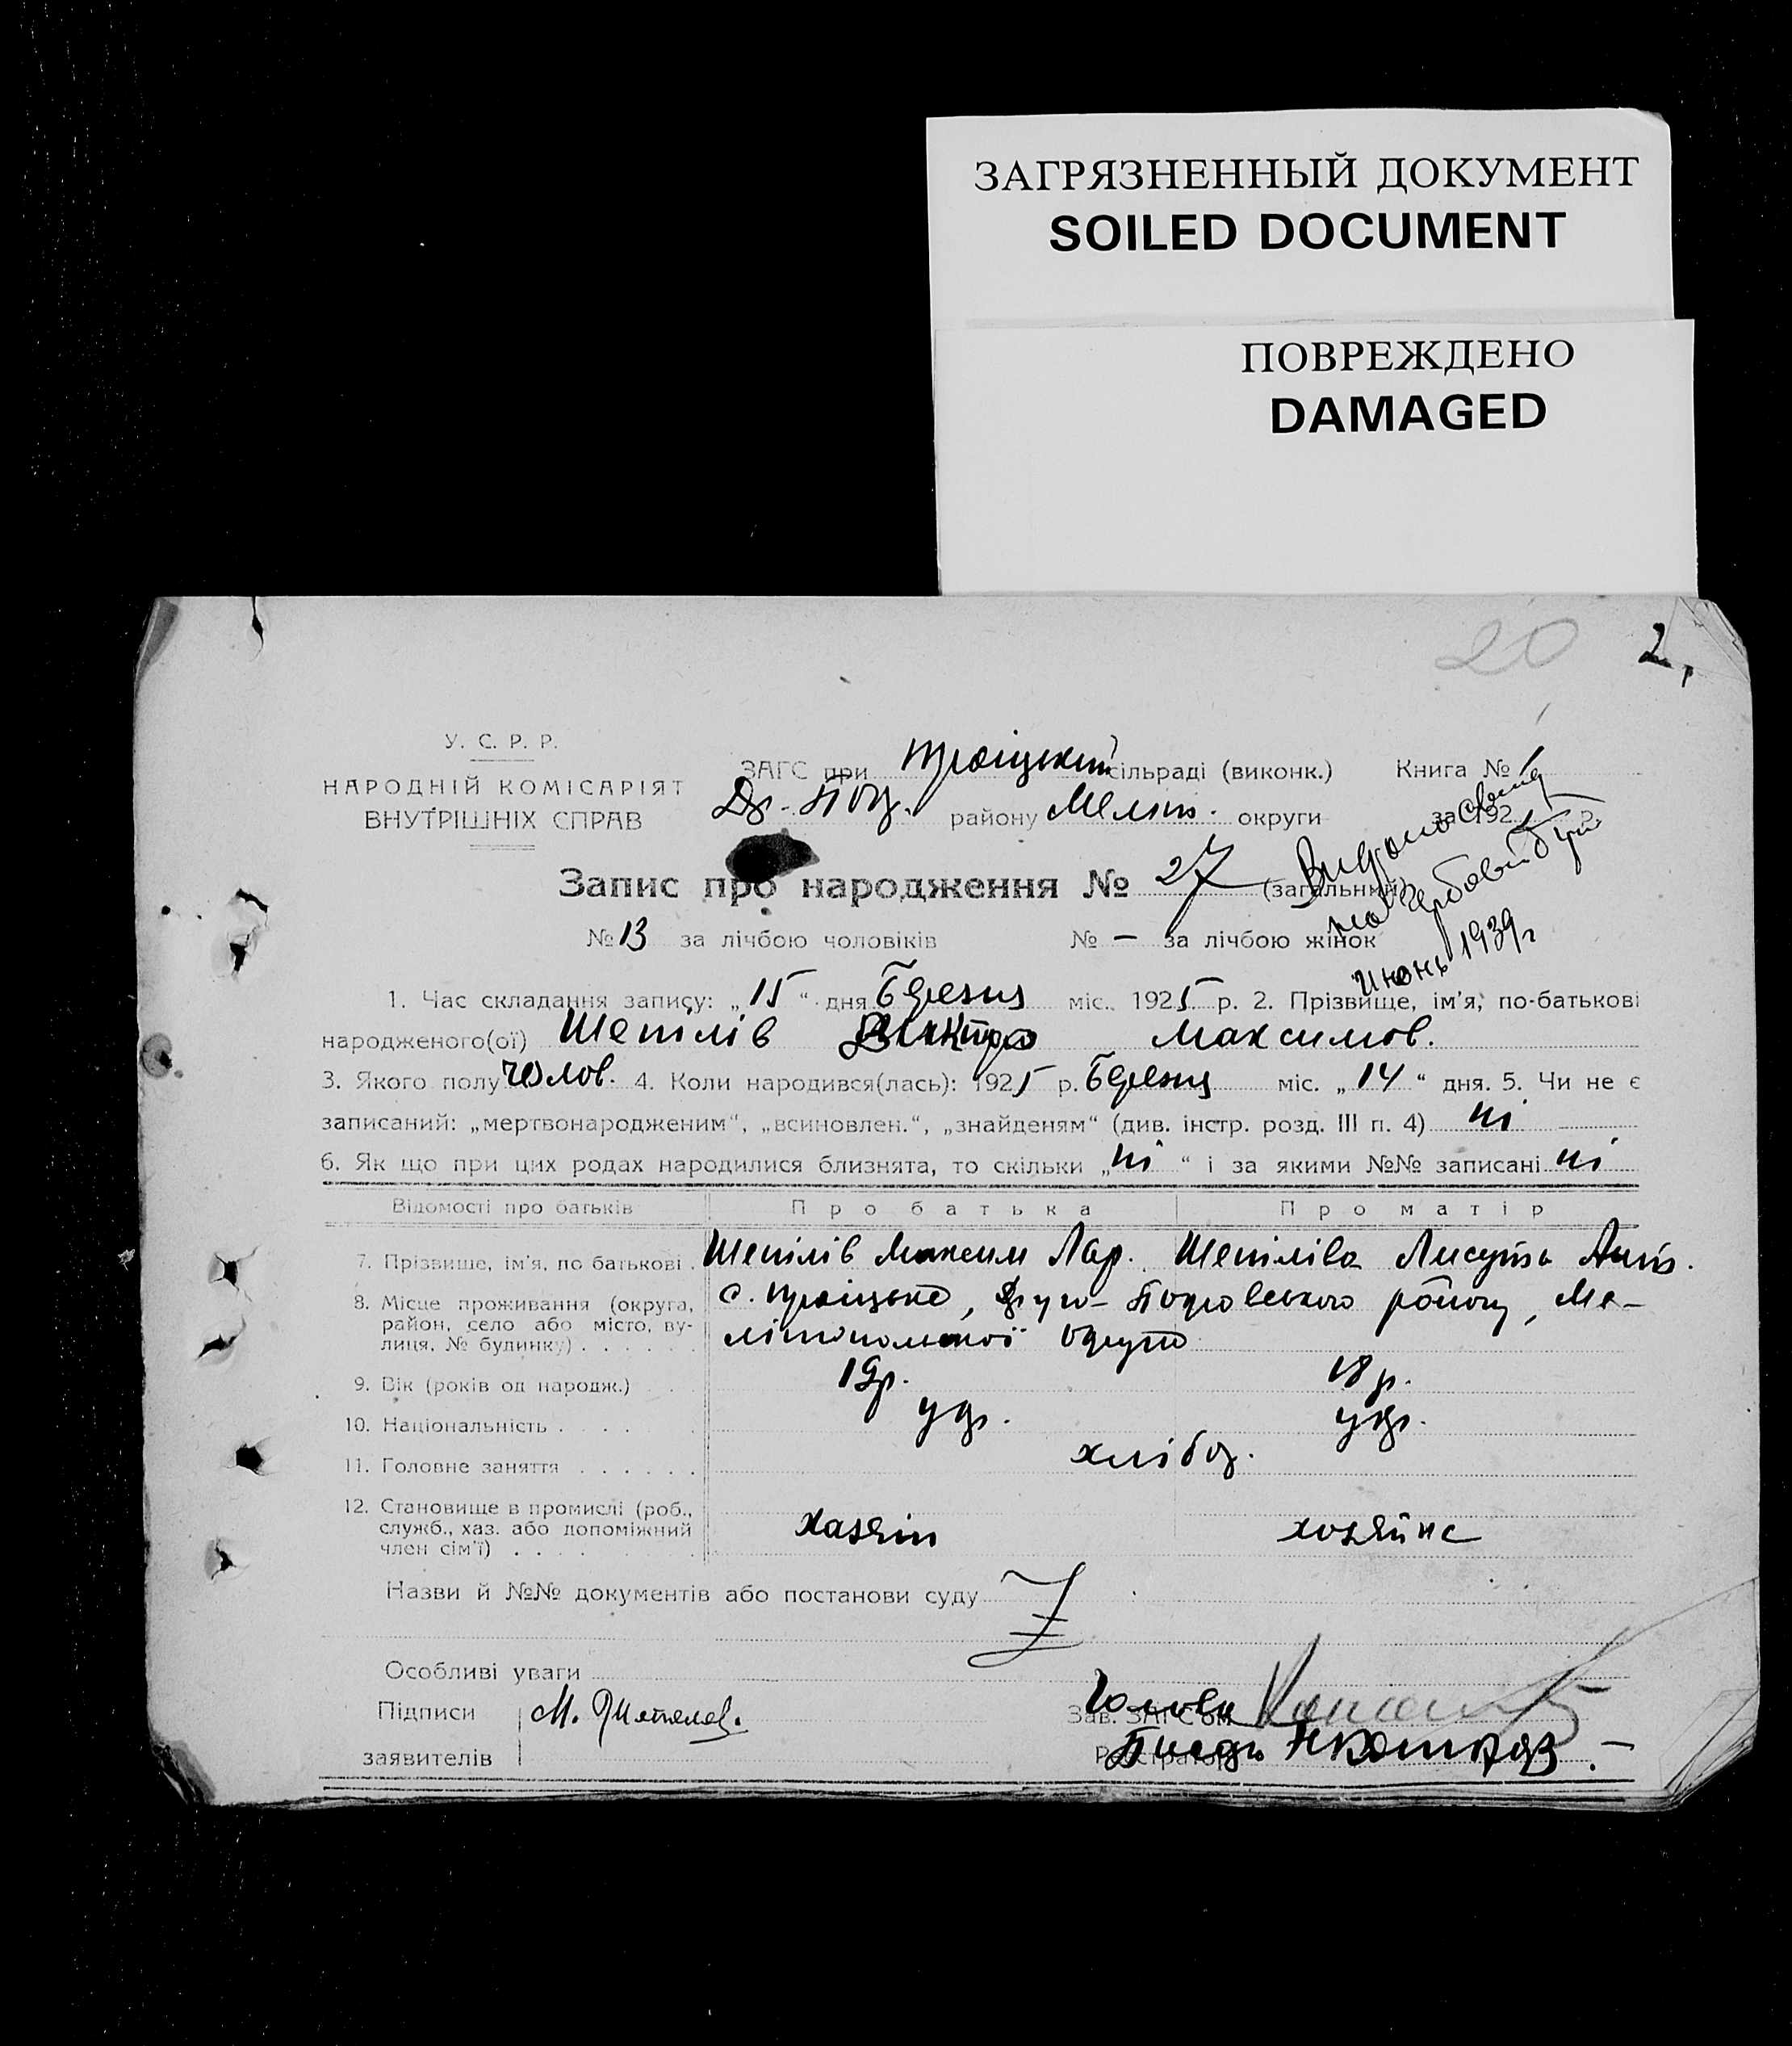 ЗАГРЯЗНЕННЫЙ ДОКУМЕНТ
SOILED DOCUMENT
ПОВРЕЖДЕНО
DAMAGED
20 2,
У. С. Р. Р.
НАРОДНІЙ КОМІСАРІЯТ
ВНУТРІШНІХ СПРАВ
ЗАГС при Троіцький сільраді (виконк.) Книга №
Др. Пок. району Меліт. округи за 192 р.
Запис про народження № 27 (загальний)
июнь 1939 г
№ 13 за лічбою чоловіків № — за лічбою жінок
1. Час складання запису: „15“ дня Березня міс. 1925 р. 2. Прізвище, ім'я, по-батькові
народженого(ої) Шепілів Виктор Максимов.
3. Якого полу Чолов. 4. Коли народився(лась): 1925 р. Березня міс. „14“ дня. 5. Чи не є
записаний: „мертвонародженим“, „всиновлен.“, „знайденям“ (див. інстр. розд. III п. 4) ні
6. Як що при цих родах народилися близнята, то скільки „ні“ і за якими №№ записані ні
Відомості про батьків Про батька Про матір
7. Прізвище, ім'я, по батькові . Шепілів Максим Лар. Шепіліва
8. Місце проживання (округа, район, село або місто, вулиця, № будинку) . . . . . . с. Троіцьке, району, Мелітопольської округи
9. Вік (років од народж.) 19 р. 18 р.
10. Національність . . . . укр. укр.
11. Головне заняття . . . . . . хлібор.
12. Становище в промислі (роб., служб., хаз. або допоміжний член сім'ї) . . . . хазяін хозяйка
Назви й №№ документів або постанови суду
Особливі уваги
Підписи М. Зав. ЗАГС'ом Голова
заявителів Реєстратор